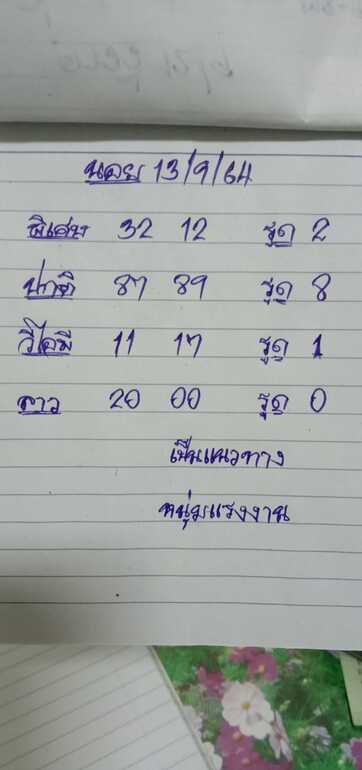 นอย 13/9/64
พิเศษ 32 12 รูด 2
ปกติ 87 89 รูด 8
วีไอพี 11 17 รูด 1
ลาว 20 00 รูด 0
เป็นแนวทาง
หนุ่มแรงงาน